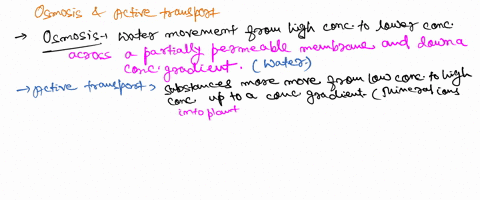 Osmosis & Active transport
→ Osmosis → Water movement from high conc to lower conc.
across a partially permeable membrane and down a
conc gradient. (Water)
→ Active transport → Substances move more from low conc to high
conc up to a conc gradient. (Mineral ions
into plant